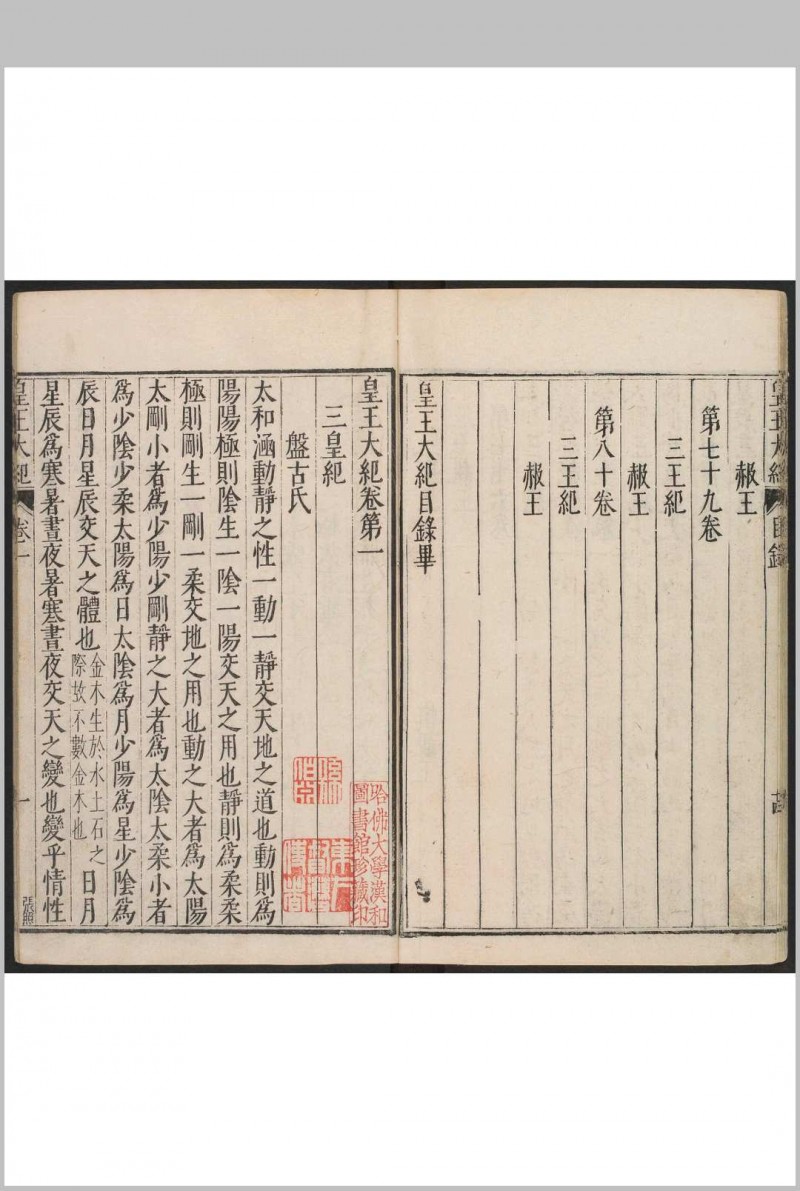 赧王
第七十九卷
三王紀
赧王
第八十卷
三王紀
赧王
皇王大紀目錄畢
皇王大紀卷第一
三皇紀
盤古氏
太和涵動靜之性一動一靜交天地之道也動則爲
陽陽極則陰生一陰一陽交天之用也靜則爲柔柔
極則剛生一剛一柔交地之用也動之大者爲太陽
太剛小者爲少陽少剛靜之大者爲太陰太柔小者
爲少陰少柔太陽爲日太陰爲月少陽爲星少陰爲
辰日月星辰交天之體也金木生於水土石之際故不數金木也日月
星辰爲寒暑晝夜暑寒晝夜交天之變也變乎情性
皇王大紀
卷一
一
張照
哈佛大學漢和
圖書館珍藏印